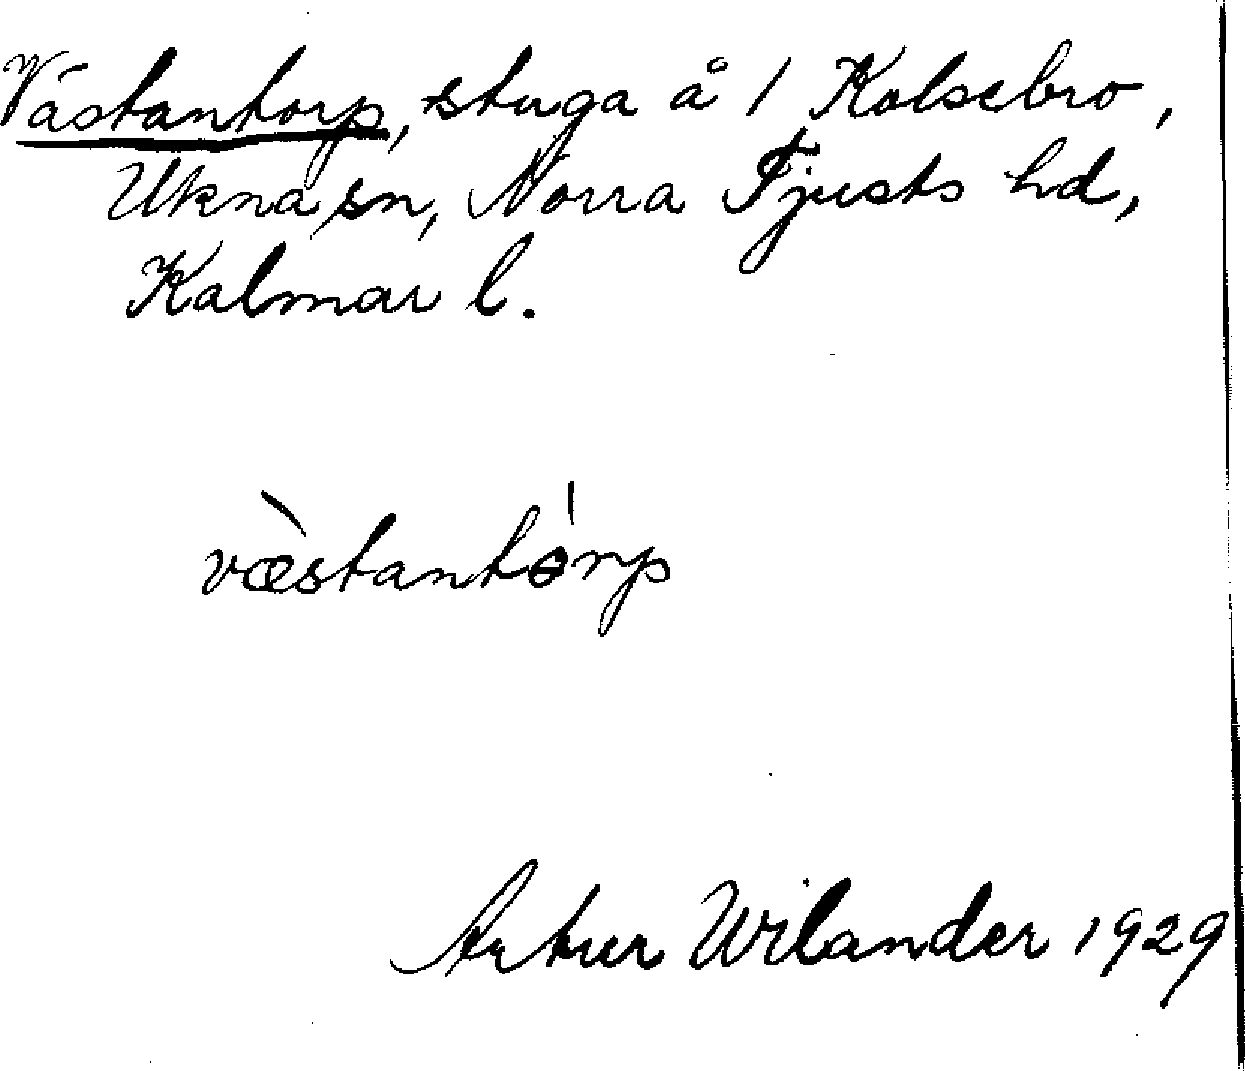 Västantorp, stuga å 1 Kolsebro,
Ukna sn, Norra Tjusts hd,
Kalmar l.
væ̀stantɵ́rp
Artur Wilander 1929